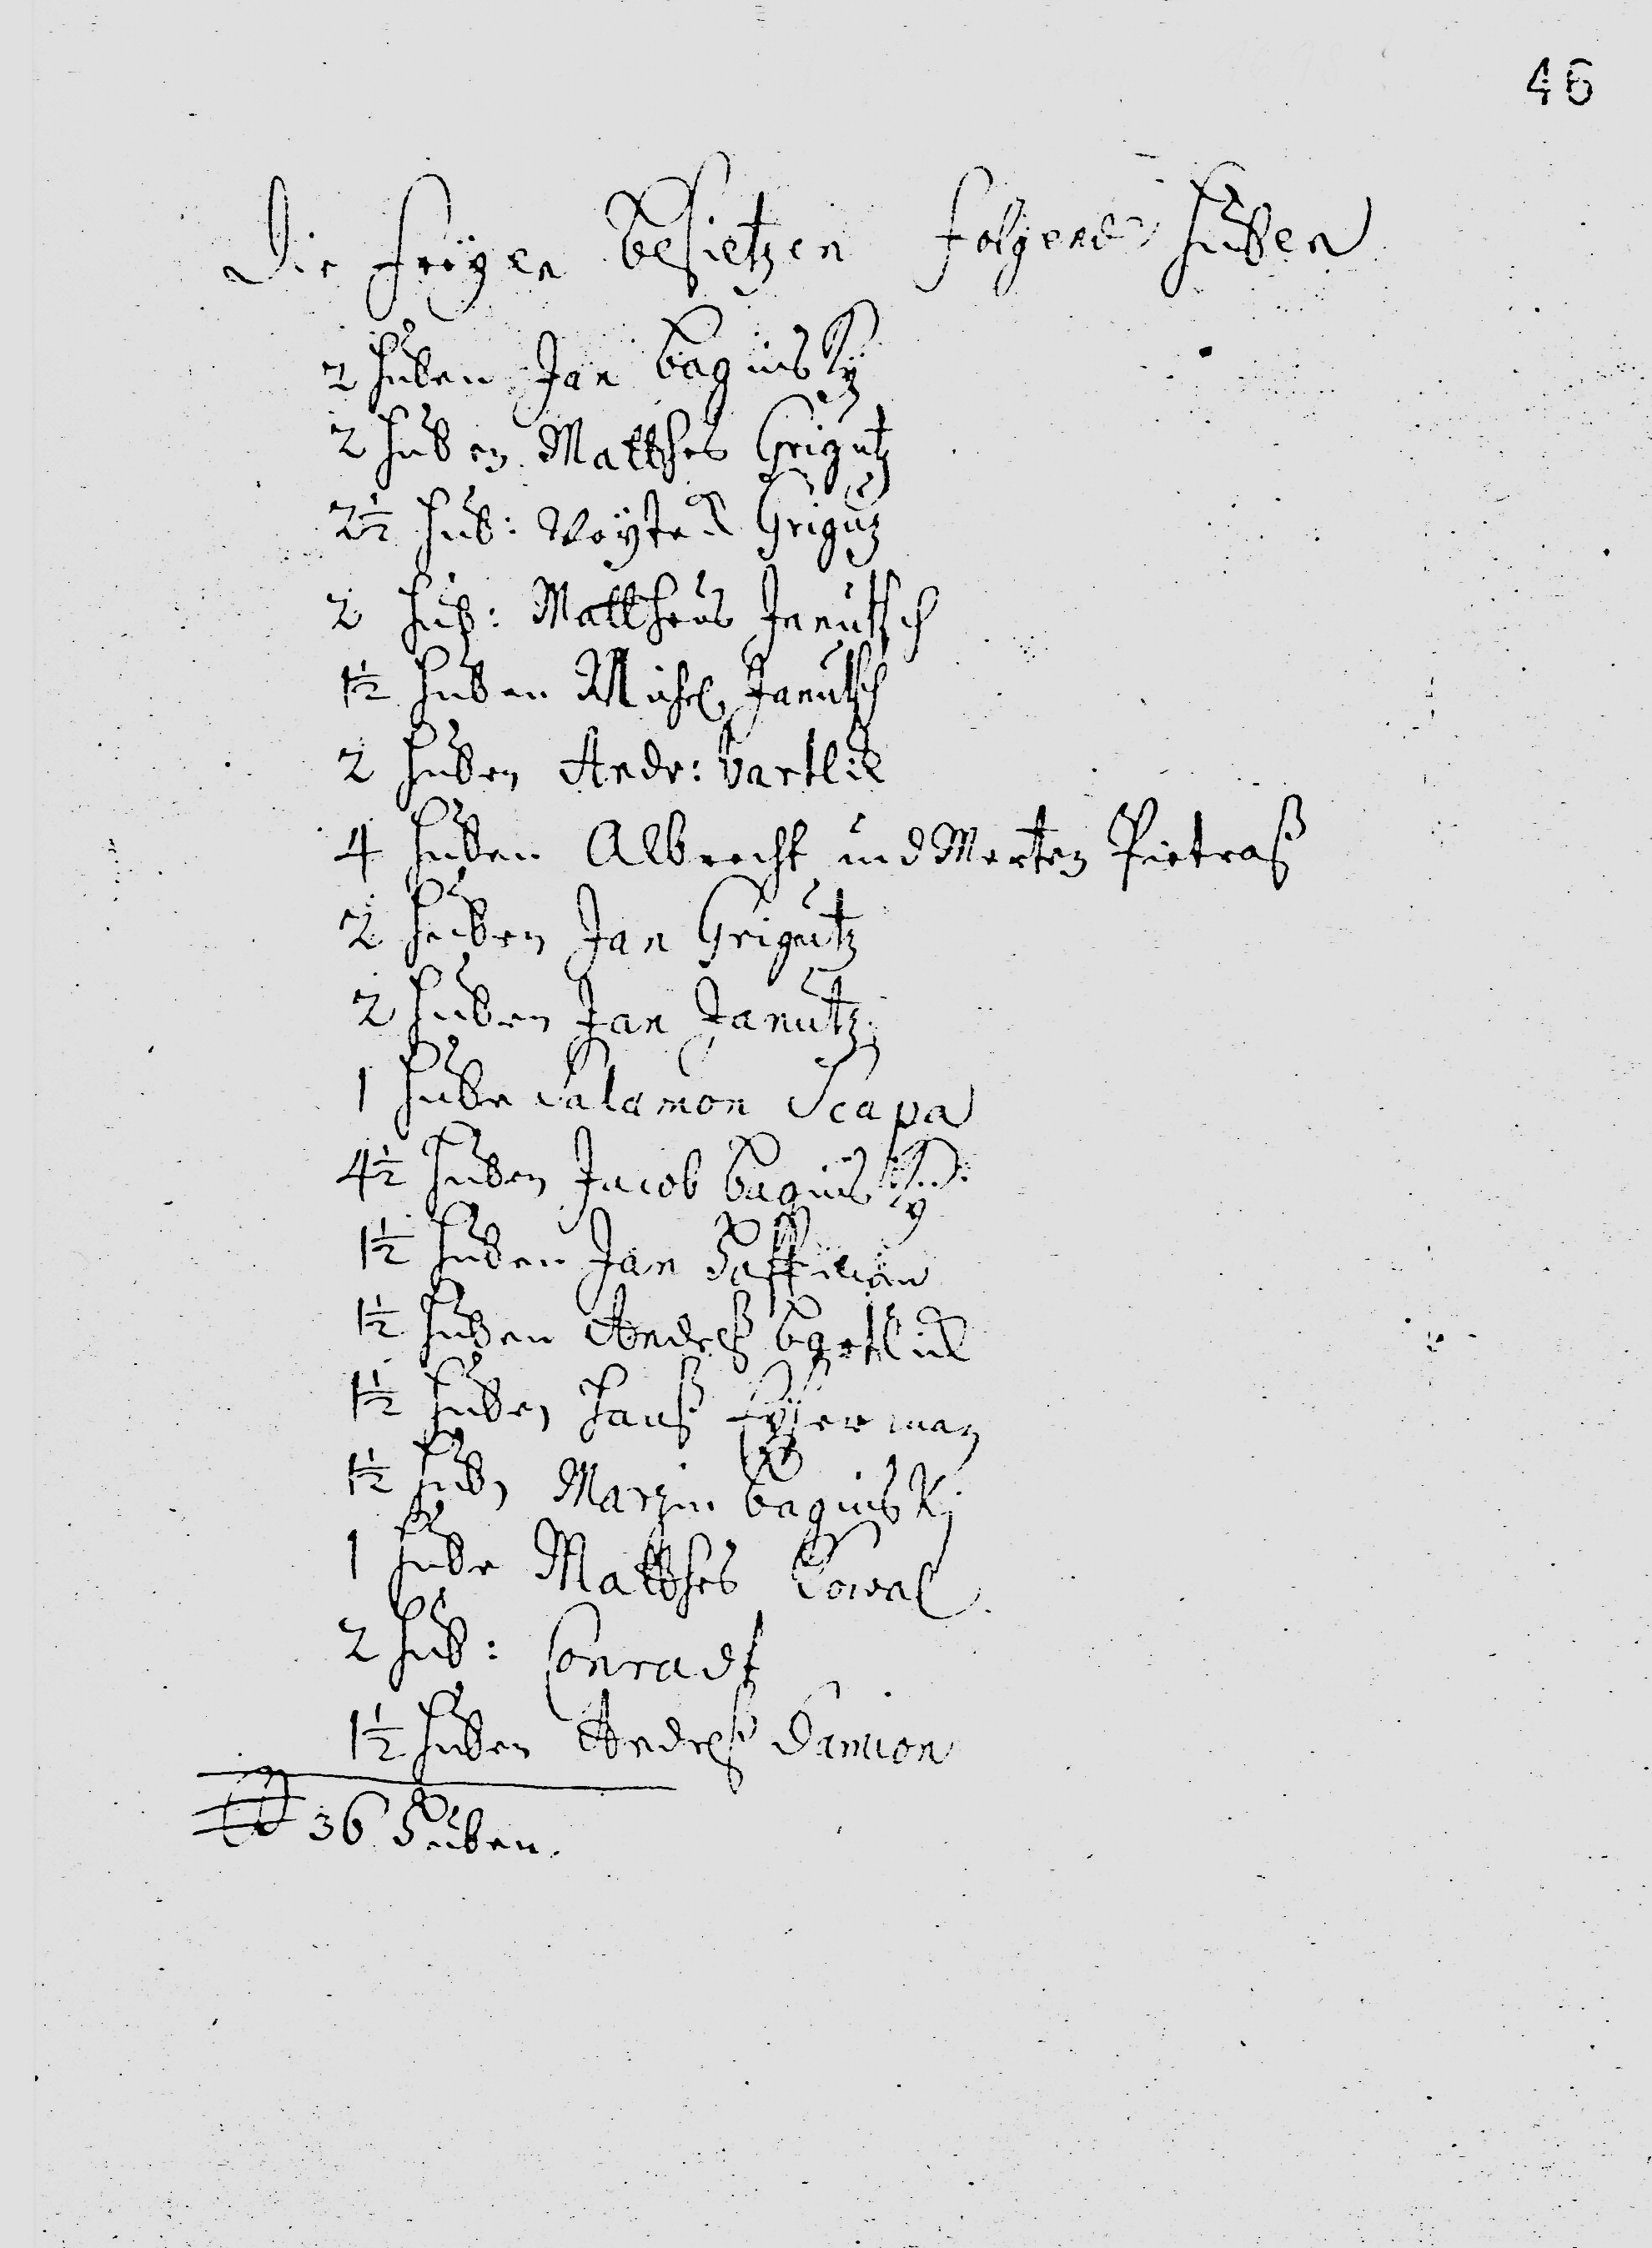 46
Die Freÿen besietzen folgende Huben
2 Huben Jan Baginsky
2 Huben Matthes Grigutz
2½ Hub: Woÿtek Griguz
2 Hub: Mattheus Janutsch
1½ Huben Michel Janutsch
2 Huben Andr: Bartlik
4 Huben Albrecht und Merten Pietraß
2 Huben Jan Grigutz
2 Huben Jan Janutz
1 Hube Salamon Scapa
4½ Huben Jacob Baginskÿ
1½ Huben Jan
1½ Huben Andreß Bartlick
1½ Huben Hanß
1½ Hubn Marzin Baginskj
1 Hube Matthes Kowal
2 Hub: Conradt
1½ Huben Andreß Damion
36 Huben.